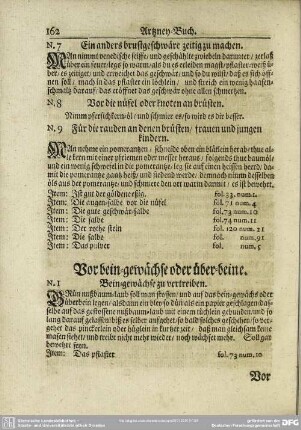 162 Artzney-Buch.
N. 7 Ein anders brustgeschwär zeitig zu machen.
MAn nimmt venedische seiffe/ und geschählte zwiebeln darunter/ zerlaß
über ein feuer/legs so warm als du es erleiden magst/
über/ es zeitiget/ und erweichet das geschwär/ und so du wilst/ daß es sich öff-
nen soll/ mach in das pflaster ein löchlein/ und streich ein wenig haasen-
schmaltz darauf/ das eröffnet das geschwär ohne allen schmertzen.
N. 8 Vor die nüsel oder knoten an brüsten.
Nimm pfersichkern-öl/ und schmier es/ so wird es dir besser.
N. 9 Für die rauden an denen brüsten/ frauen und jungen
kindern.
MAn nehme ein pomerantzen/ schneide oben ein blätlein herab/ thue al-
le kern mit einer pfriemen oder messer heraus/ folgends thue baumöl/
und ein wenig schwefel in die pomerantzen/ leg sie auf einen heissen herd/ da-
mit die pomerantz gebraten/ und siedend werde/ demnach nimm desselben
öls aus der pomerantz und schmiere den ort warm darmit/ es ist bewehrt.
Item: Ist gut der güldene fol. 33. num.1.
Item: Die augen-salbe vor die nüsel fol. 71 num. 4
Item: Die gute geschwär-salbe fol. 73 num. 10
Item: Die salbe fol. 74 num. 11
Item: Der rothe stein fol. 120 num. 31
Item: Die salbe fol. num. 91
Item: Das pulver fol. num. 5
Vor bein-gewächse oder über-beine.
N. 1 Bein-gewächse zu vertreiben.
GRün nußbaum-laub soll man stossen/ und auf das bein-gewächs oder
überbein legen/ alsdann nimm ein papier
selbe auf das gestossene nußbaum-laub mit einem tüchlein gebunden/ und so
lang darauf gelassen/ biß es selber aufgehet/ so bald solches geschehen/ so ver-
gehet das pinckerlein oder hüglein in kurtzer zeit/ daß man gleichsam keine
masen siehet/ und der ort nicht mehr weder noch mehr wachse. Soll gar
bewehrt seyn.
Item: Das pflaster fol. 73 num. 10
Vor